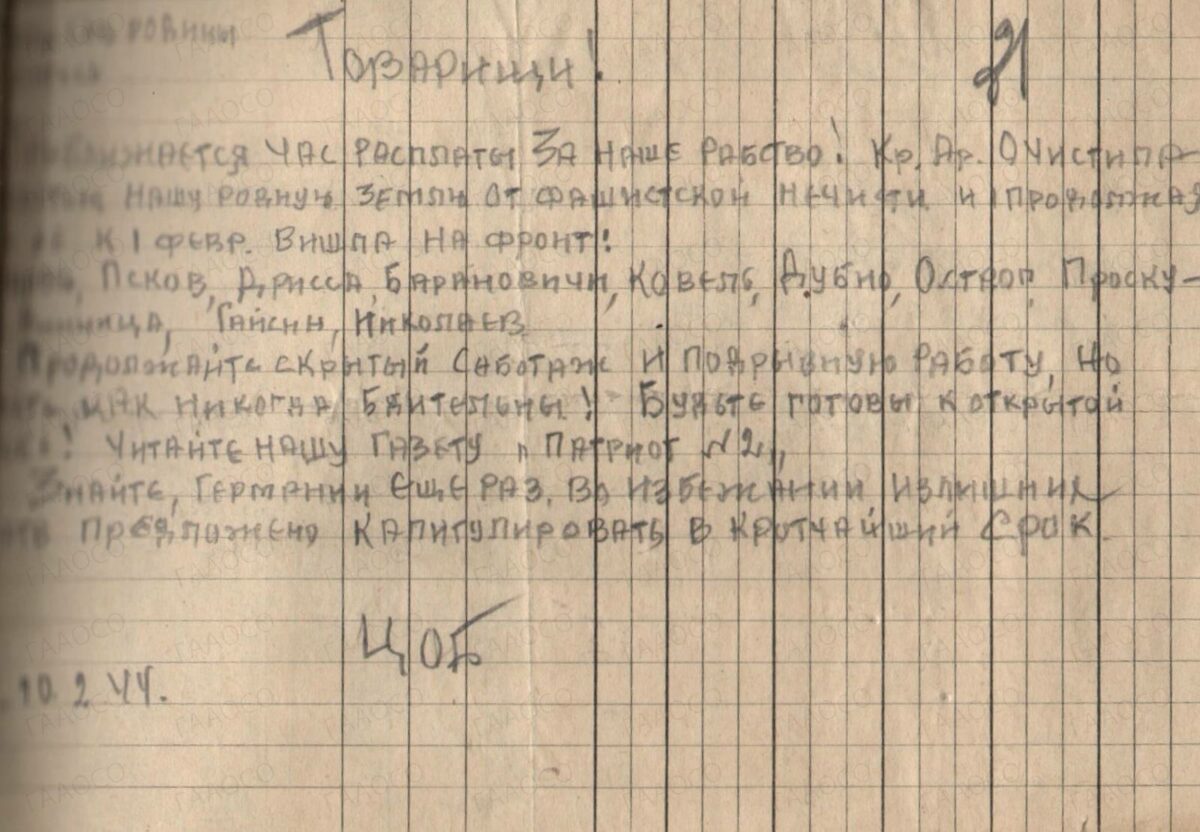 Товарищи! 21
ЧАС РАСПЛАТЫ ЗА НАШЕ РАБСТВО! Кр. Ар. Очистила
НАШУ РОДНУЮ ЗЕМЛЮ ОТ ФАШИСТСКОЙ НЕЧИСТИ И ПРОДОЛЖАЯ
К 1 ФЕВР. ВИШЛА НА ФРОНТ!
Псков, Дрисса, Барановичи, Ковель, Дубно, Острог, Проску-
Гайсин, Николаев
Продолжайте скрытый Саботаж и подрывную работу, но
как никогда, бдительны! Будьте готовы к открытой
Читайте нашу газету „Патриот №2"
Знайте, Германии еще раз, во избежании излишних
предложено капитулировать в кротчайший срок.
ЦОБ
10. 2 44.